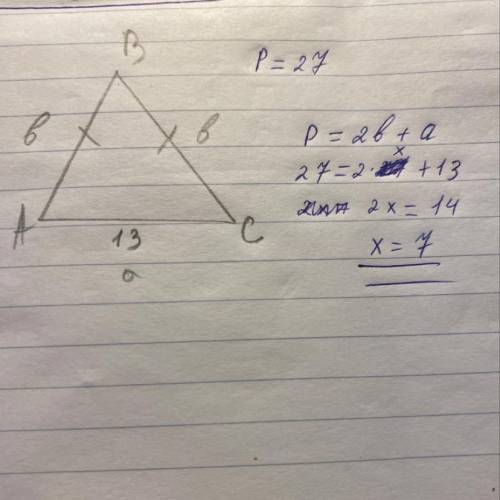 B
P = 27
в в
P = 2в + a
x
27 = 2· + 13
A C
2x = 14
13
x = 7
a